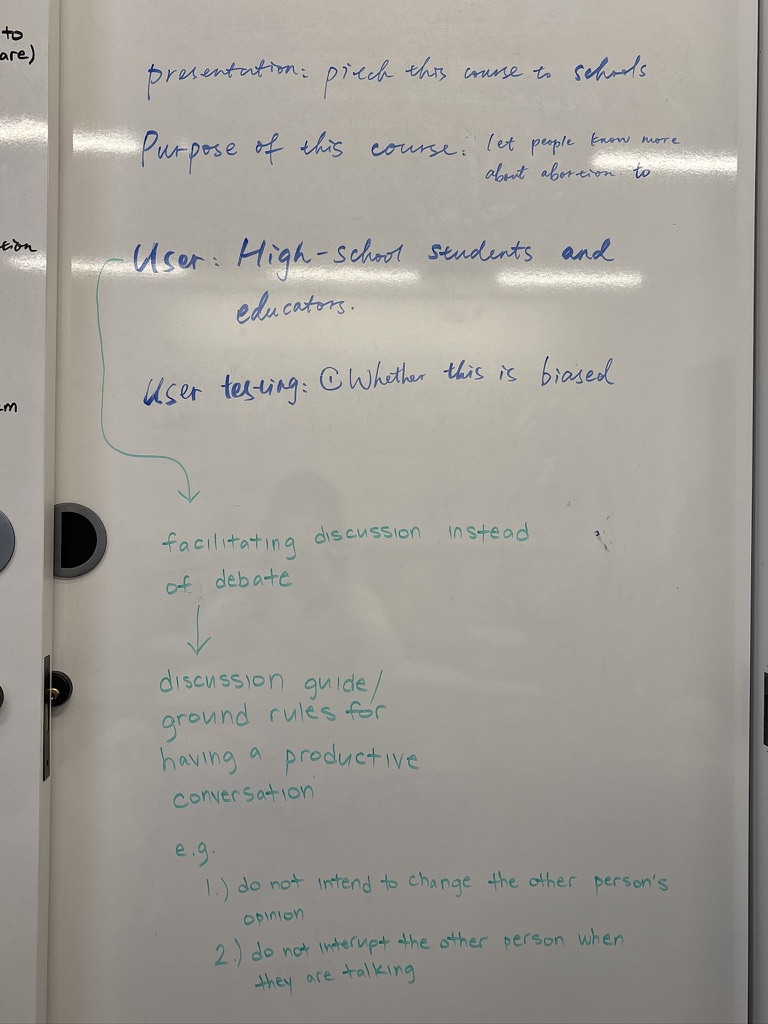 to
are)
tion
m
presentation: pitch this course to schools
Purpose of this course: let people know more
about abortion to
User: High-school students and
educators.
User testing: ① Whether this is biased
facilitating discussion instead
of debate
discussion guide/
ground rules for
having a productive
conversation
e.g.
1.) do not intend to change the other person's
opinion
2.) do not interupt the other person when
they are talking